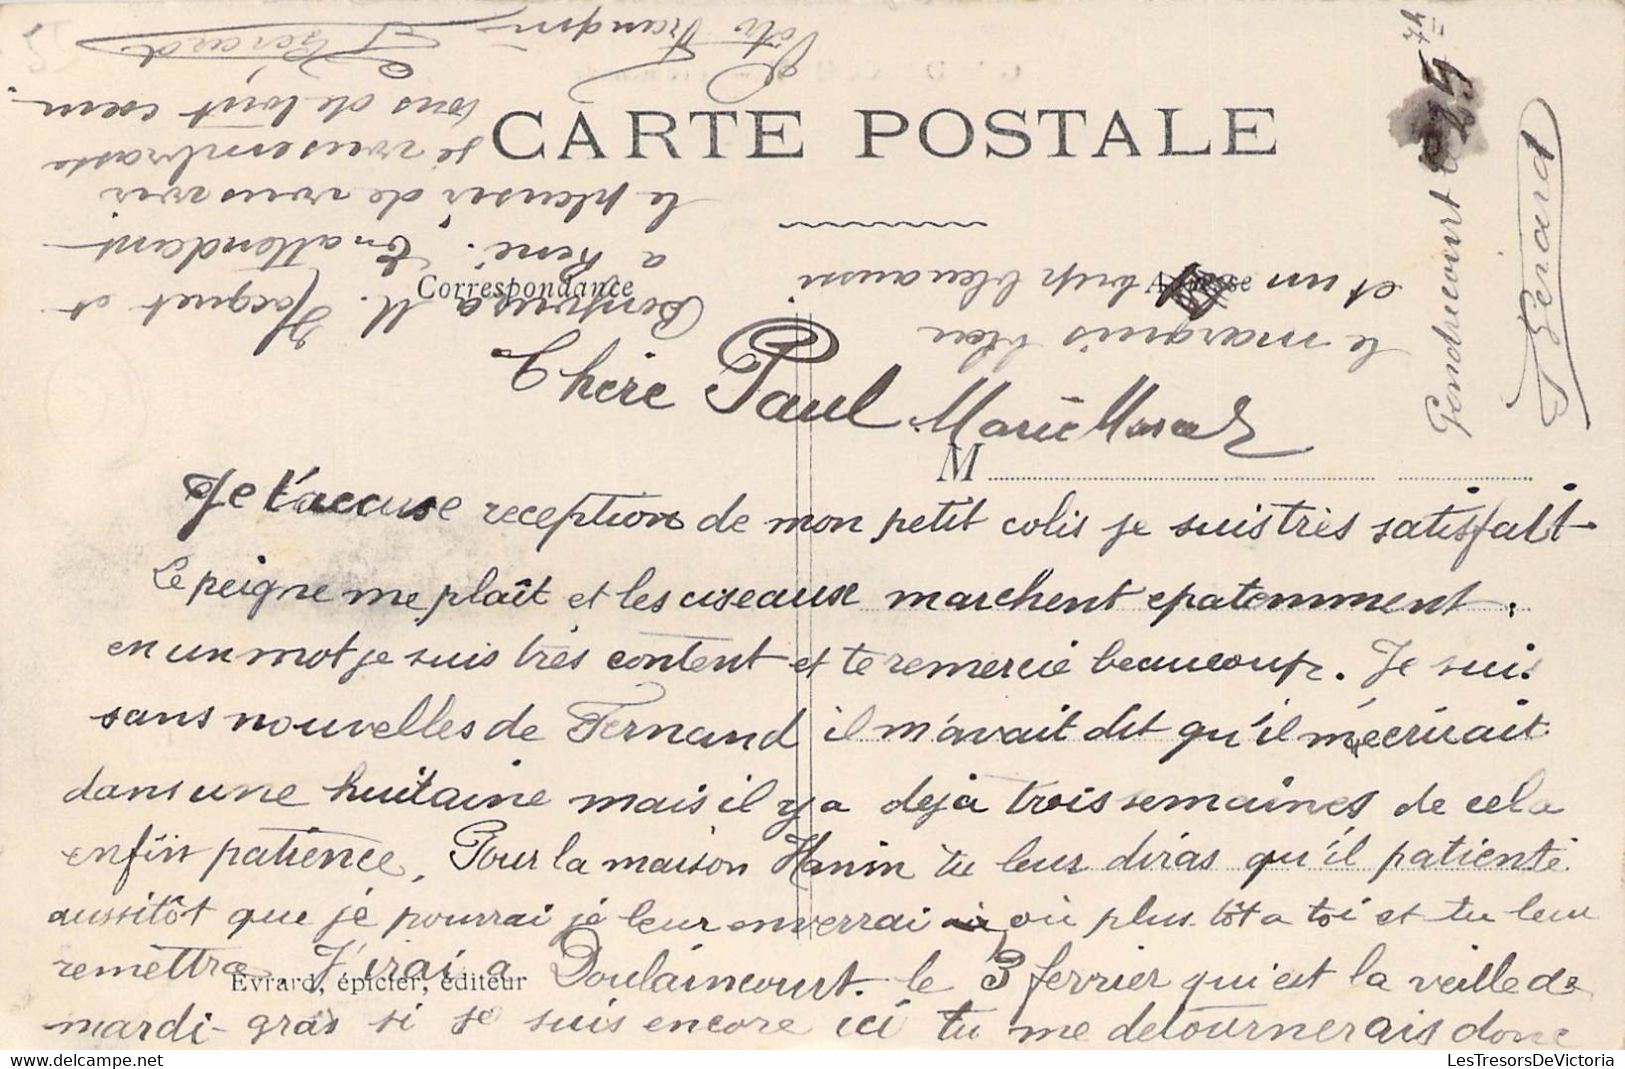 Gondrecourt le 25 7h
Gérard
CARTE POSTALE
Correspondance
Adresse
Chère Paul Marie
M
Je t'accuse reception de mon petit colis je suis très satisfait
Le peigne me plaît et les ciseaux marchent epatemment,
en un mot je suis très content et te remercie beaucoup. Je suis
sans nouvelles de Fernand il m'avait dit qu'il m'ecrirait
dans une huitaine mais il y a deja trois semaines de cela
enfin patience, Pour la maison Hanin tu leur diras qu'il patiente
aussitôt que je pourrai je leur enverrai ou plus tôt a toi et tu leur
remettra J'irai a Doulaincourt. le 3 fevrier qui est la veille de
Evrard, épicier, éditeur
mardi-gras si je suis encore ici tu me detournerais donc
le marquis bleu
et un bip bleu aussi
Bonjour a M. Hacquet et
a René. En attendant
le plaisir de vous voir
je vous embrasse
tous de tout cœur.
Votre frangin
Gérard
LesTresorsDeVictoria